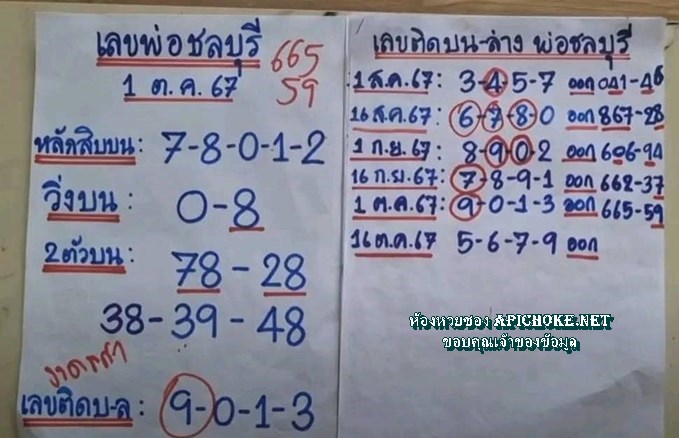 เลขพ่อชลบุรี
665
1 ต.ค. 67
59
หลักสิบบน: 7-8-0-1-2
วิ่งบน: 0-8
2ตัวบน:
78-28
38-39-48
เลขติดบ-ล: 9-0-1-3
เลขติดบน-ล่าง พ่อชลบุรี
1 ส.ค.67: 3-4-5-7 ออก 041-46
16 ส.ค.67: 6-7-8-0 ออก 867-28
1 ก.ย.67: 8-9-0-2 ออก 606-94
16 ก.ย.67: 7-8-9-1 ออก 662-37
1 ต.ค.67: 9-0-1-3 ออก 665-59
16 ต.ค.67 5-6-7-9 ออก
ห้องหวยซอง APICHOKE.NET
ขอบคุณเจ้าของข้อมูล